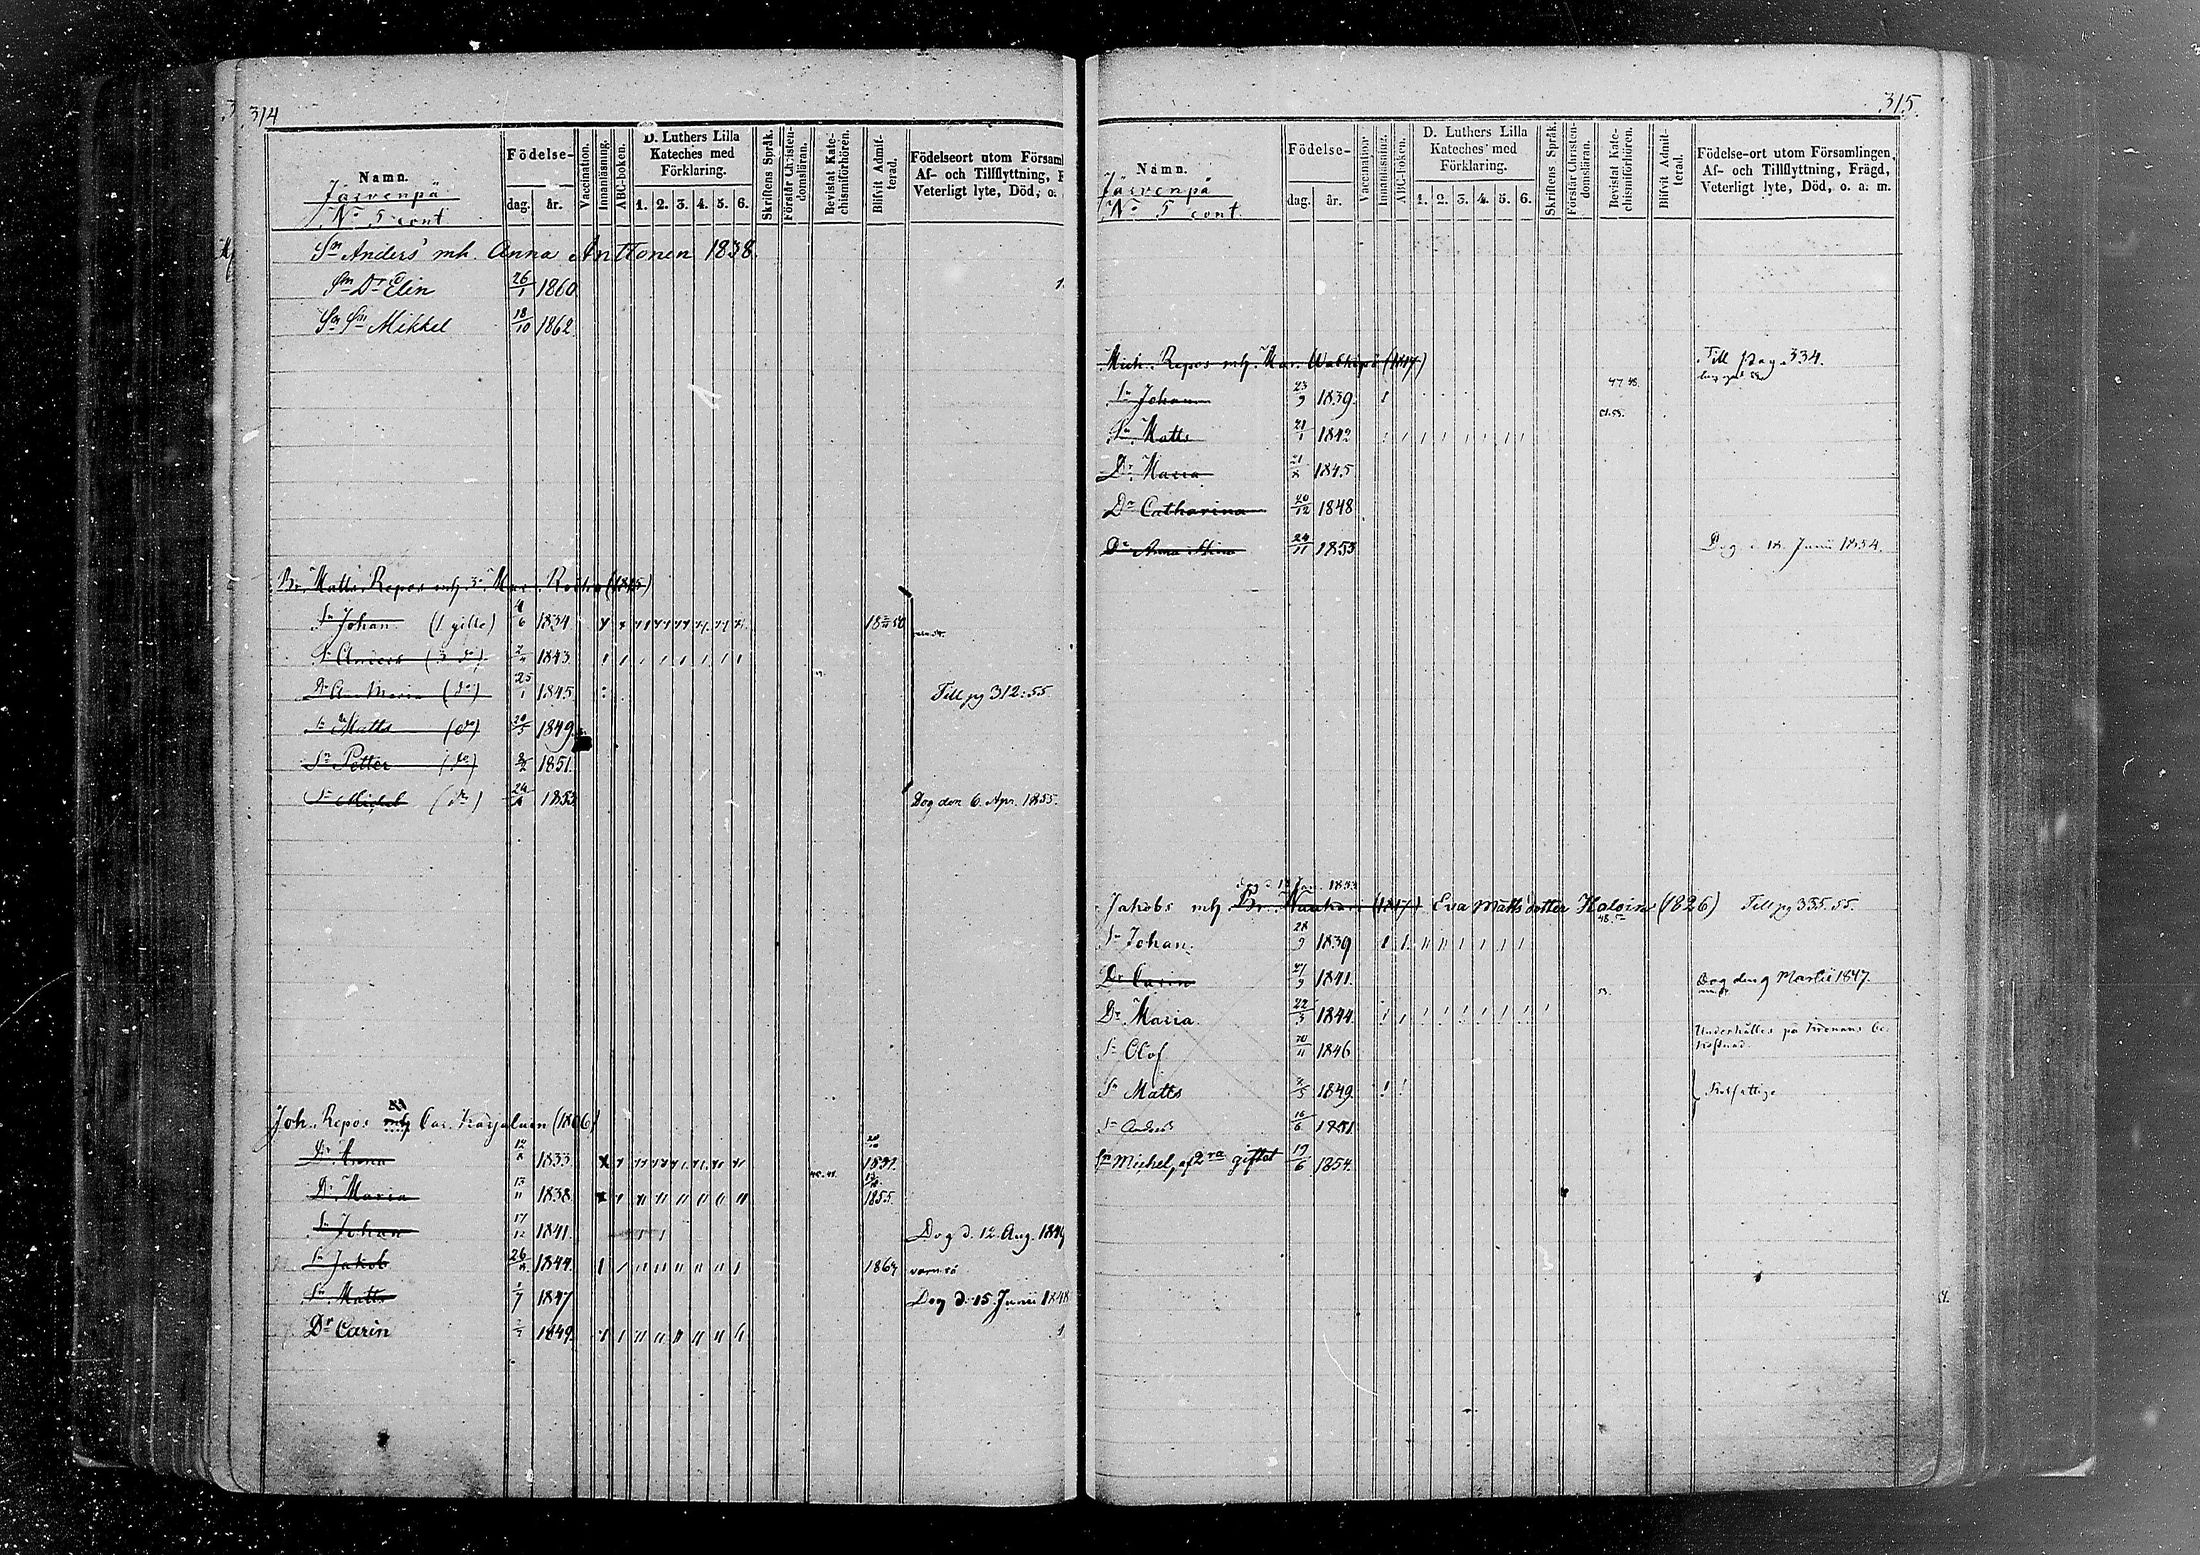 314
Namn.
Järvenpä
No 5 cont
Födelse-
dag. år.
Vaccination.
Innanläsning.
ABC-boken.
D. Luthers Lilla
Kateches med
Förklaring.
1. 2. 3. 4. 5. 6.
Skriftens Språk.
Förstår Christen-
domsläran.
Bevistat Kate-
chismiförhören.
Blifvit Admit-
terad.
Födelseort utom Församl
Af- och Tillflyttning, F
Veterligt lyte, Död, o.
Sn Anders' mh. Anna Anttonen 1838.
Sns Dr Elin 26/1 1860
Sns Sn Mikkel 18/10 1862
Br. Matts Repos mh 3o Mar. (1815)
Sn Johan (1 gifte) 4/6 1834
Sn Anders (3 do) 1843
Dr A. Maria (do) 25/1 1845 Till pg 312:55.
Sn Matts (do) 1849
Sn Petter (do) 8/2 1851
Sn Michel (do) 1853 Dog den 6. Apr. 1855.
Joh. Repos Car. Karjaluen (1806)
Dr Anna 12/8 1833
Dr Maria 13/11 1838 1855.
Sn Johan 17/12 1841 Dog d. 12. Aug.
Sn Jakob 1844 1864
Sn Matts 1847 Dog d. 15. Junii 1848
Dr Carin 1849
315.
Namn.
Järvenpä
No 5 cont.
Födelse-
dag. år.
Vaccination.
Innanläsning.
ABC-boken.
D. Luthers Lilla
Kateches med
Förklaring.
1. 2. 3. 4. 5. 6.
Skriftens Språk.
Förstår Christen-
domsläran.
Bevistat Kate-
chismiförhören.
Blifvit Admit-
terad.
Födelse-ort utom Församlingen,
Af- och Tillflyttning, Frägd,
Veterligt lyte, Död, o. a. m.
Mich. Repos mh. Mar. (1817) Till pag. 334.
47 48.
Sn Johan 23/9 1839
51.53.
Sn Matts 21/1 1842
Dr Maria 21/8 1845
Dr Catharina 20/12 1848
Dr Anna Stina 24/11 1853 Dog d. 18. Junii 1854.
dog d 18 Jan. 1853
Jakobs mh. Br. (1817) Eva Mattsdotter Haloin (1826) Till pg 335.55.
Sn Johan 28/9 1839
Dr Carin 21/9 1841 Dog den 9 Martii 1847.
Dr Maria 22/3 1844
Underhålles på Kronans be-
kostnad.
Sn Olof 20/11 1846
Sn Matts 1849
Sn Anders 16/6 1851
Sn Michel, af 2ra giftet 19/6 1854.